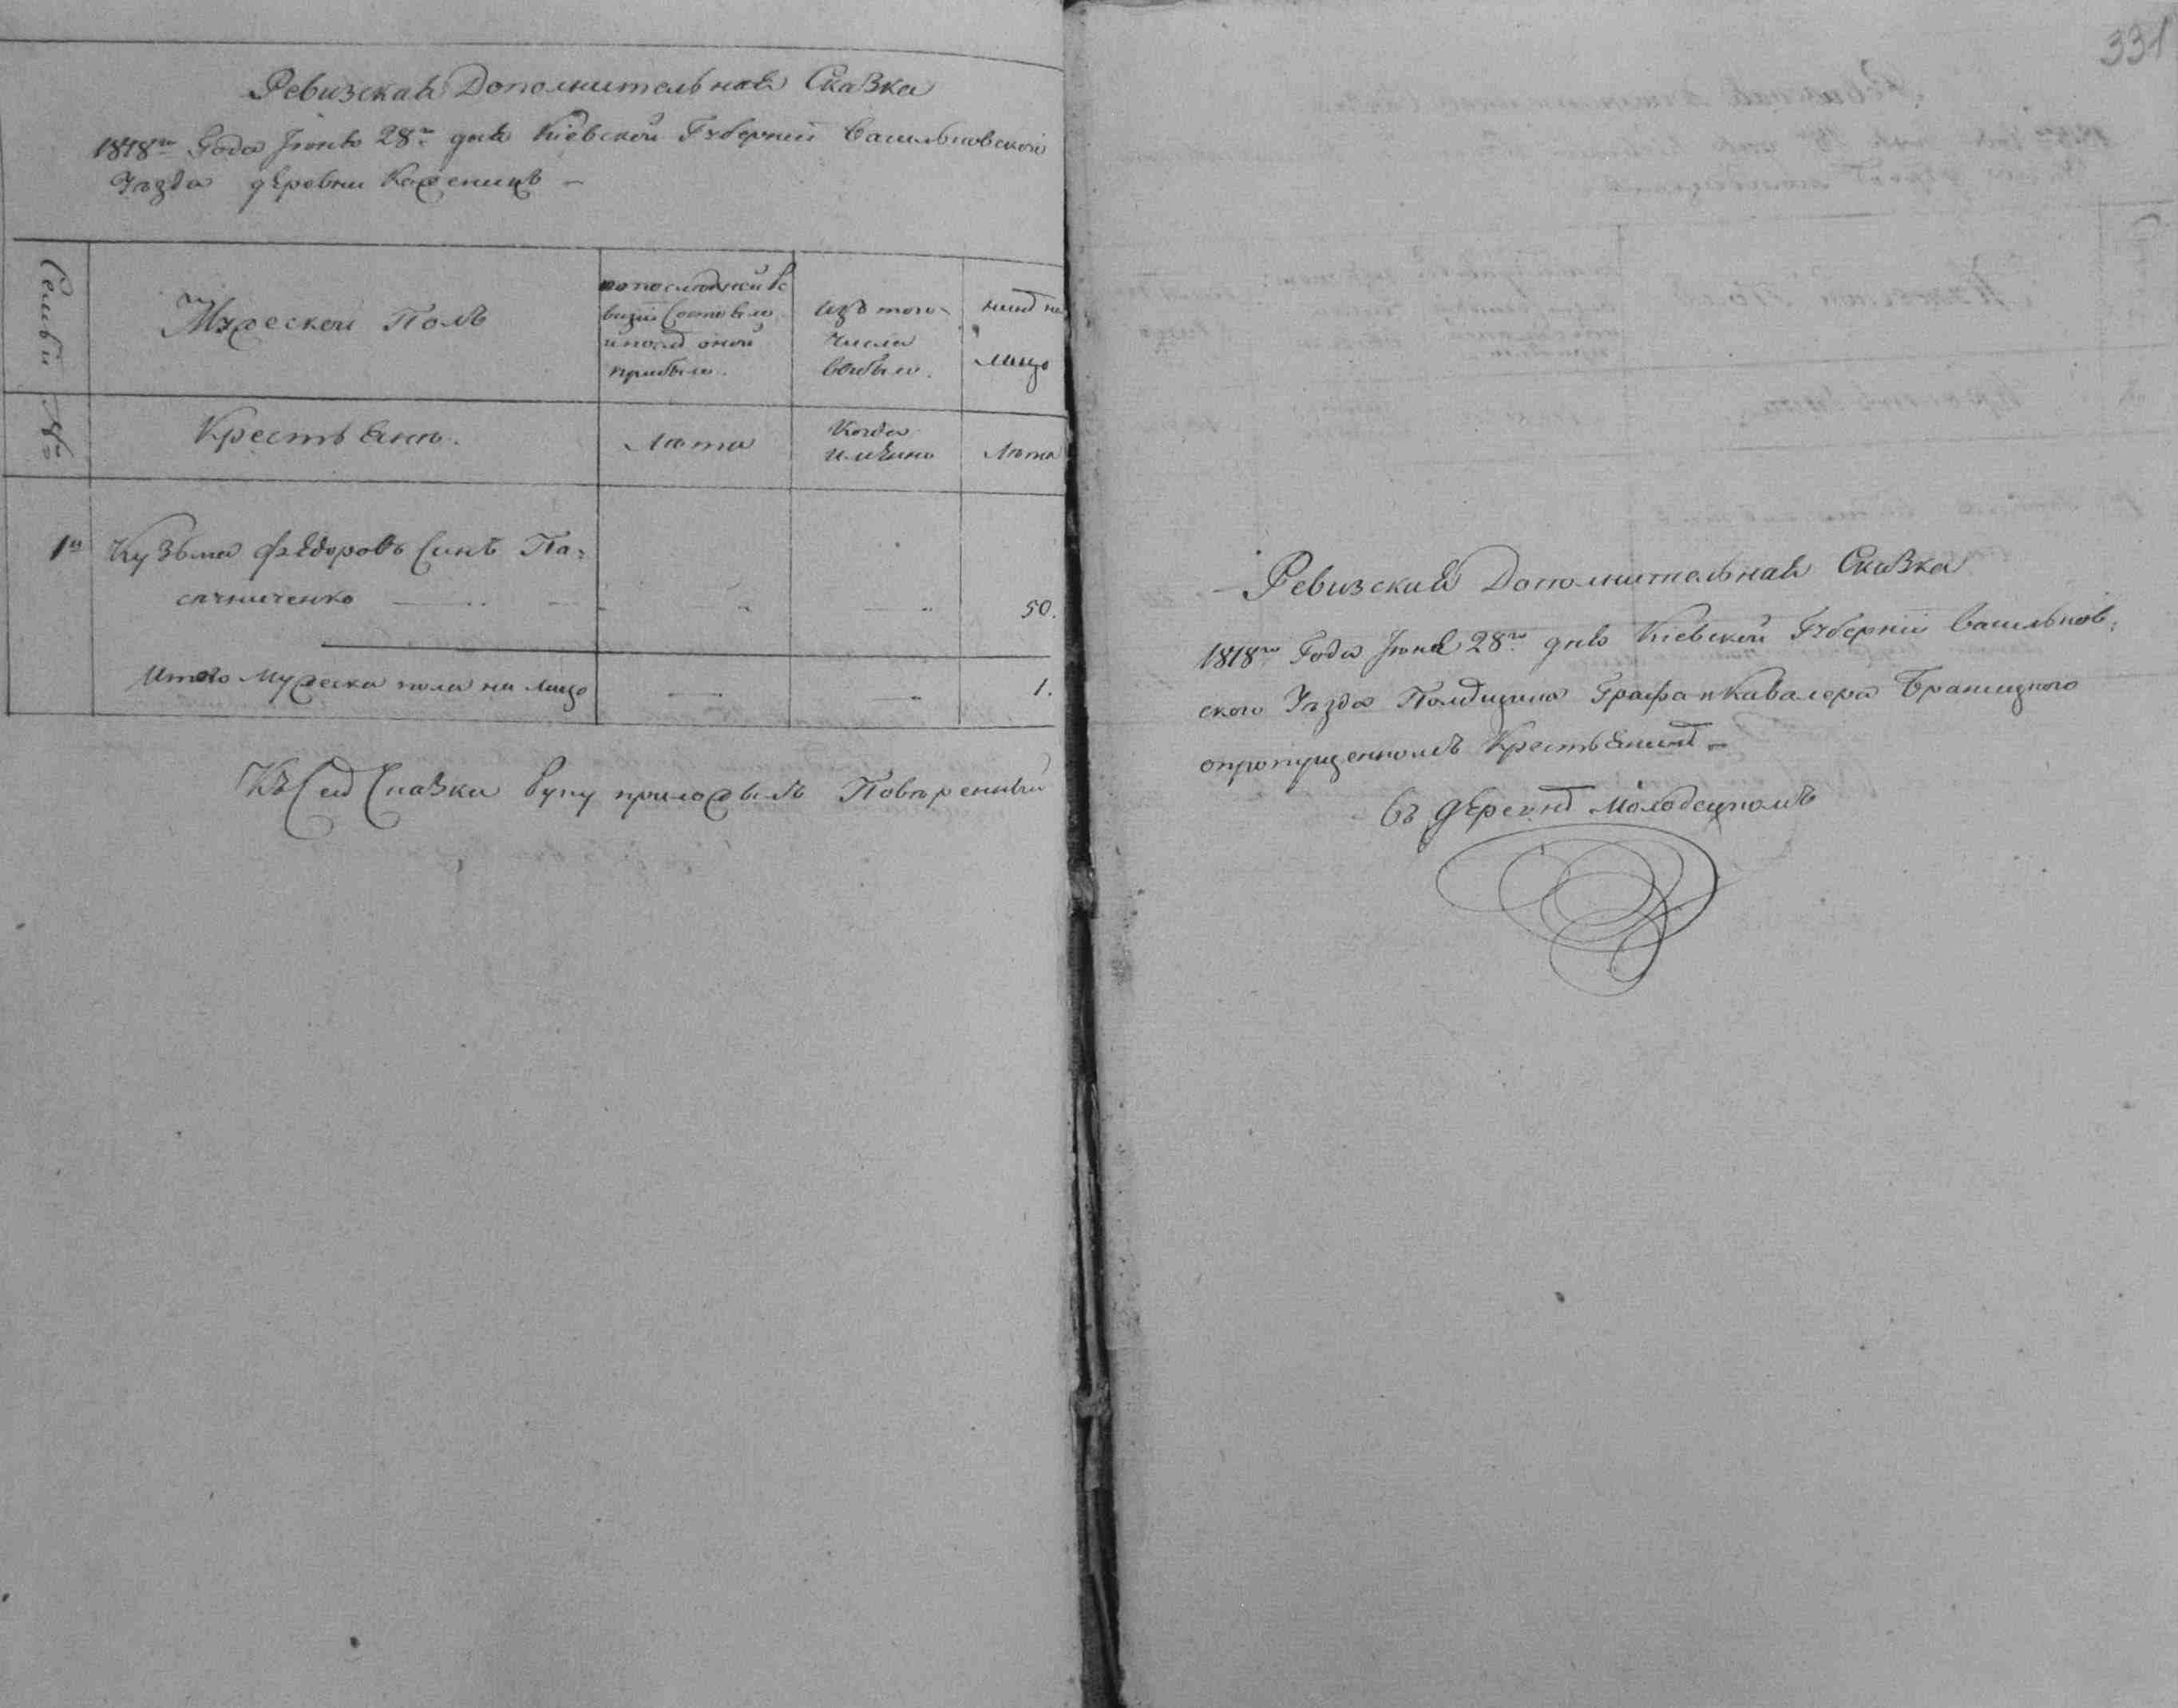 Ревизская Дополнительная Сказка
1818го Года Іюня 28го дня Кіевской Губерніи Васильковской
Уѣзда деревни
Семьи
Мужеской Полъ
по последней ре
визіи Состояло
и послѣ оной
прибыло.
Изъ того
Числа
выбыло.
нынѣ на
лицо
№
Крестьяне.
Лѣта
Когда
именно
Лѣта
1й Кузьма Федоровъ Синъ Па=
сечниченко 50.
Итого Мужеска пола на лицо 1.
Къ Сей Сказки Руку приложылъ Повѣренный
331
Ревизская Дополнительная Сказка
1818го Года Іюня 28го дня Кіевской Губерніи Васильков=
ского Уѣзда Помѣщика Графа и Кавалера Браницкого
опропущенномъ Крестьянинѣ
Въ деревнѣ Молодецкомъ